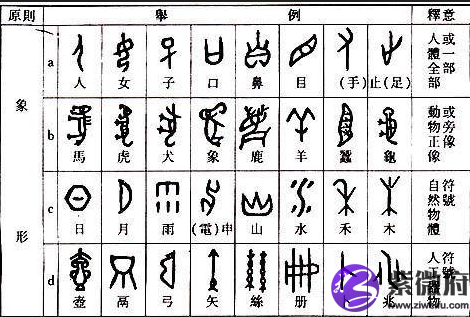 原則 舉例 釋意
象形
a 人 女 子 口 鼻 目 (手) 止(足) 人體全部或一部
b 馬 虎 犬 象 鹿 羊 蠶 龜 動物正像或旁像
c 日 月 雨 (電)申 山 水 禾 木 自然物體符號
d 壺 鬲 弓 矢 絲 册 卜 兆
紫微府
www.ziweifu.com